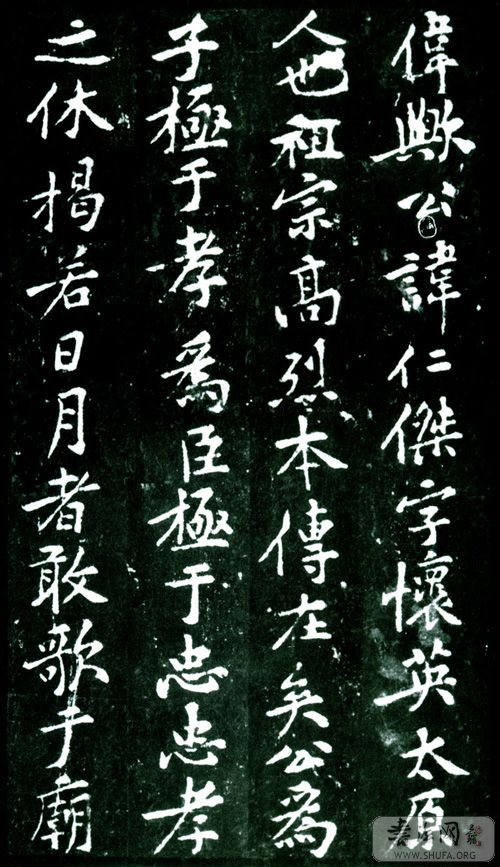 偉歟公諱仁傑字懷英太原
人也祖宗高烈本傳在矣公為
子極于孝為臣極于忠忠孝
之休揭若日月者敢歌于廟
WWW.SHUFA.ORG